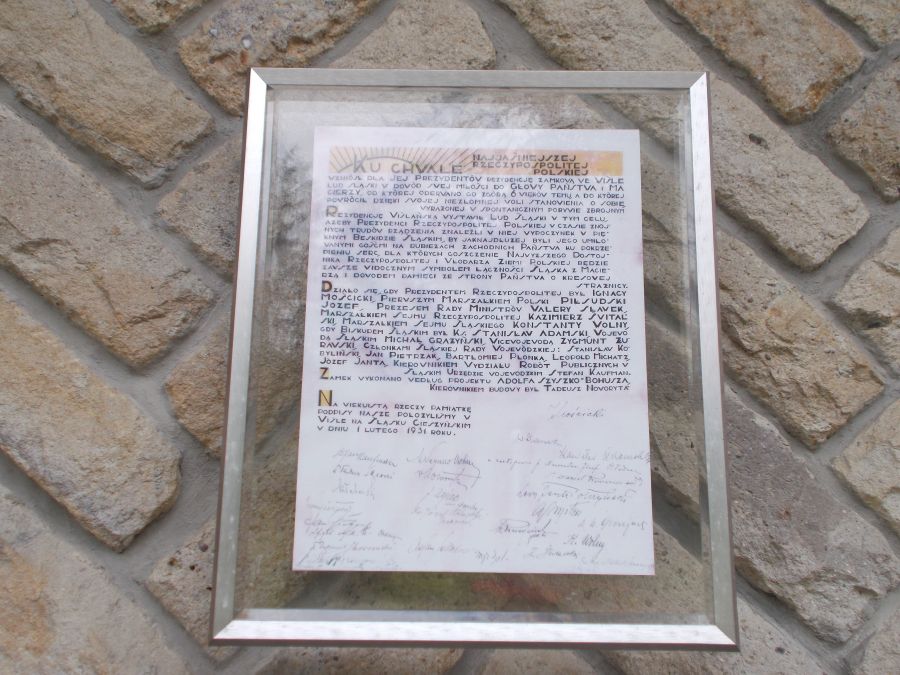 KU CHWALE NAJJAŚNIEJSZEJ
RZECZYPOSPOLITEJ
POLSKIEJ
WZNIÓSŁ DLA JEJ PREZYDENTÓW REZYDENCJĘ ZAMKOWĄ WE WIŚLE
LUD ŚLĄSKI W DOWÓD SWEJ MIŁOŚCI DO GŁOWY PAŃSTWA I MA
CIERZY, OD KTÓREJ ODERWANO GO ZGÓRĄ 6 WIEKÓW TEMU, A DO KTÓREJ
POWRÓCIŁ DZIĘKI SWOJEJ NIEZŁOMNEJ WOLI STANOWIENIA O SOBIE,
WYRAŻONEJ W SPONTANICZNYM PORYWIE ZBROJNYM
REZYDENCJĘ WIŚLAŃSKĄ WYSTAWIŁ LUD ŚLĄSKI W TYM CELU,
AŻEBY PREZYDENCI RZECZYPOSPOLITEJ POLSKIEJ W CZASIE ZNOJ
NYCH TRUDÓW RZĄDZENIA ZNALEŹLI W NIEJ WYPOCZYNEK W PIĘ
KNYM BESKIDZIE ŚLĄSKIM, BY JAKNAJDŁUŻEJ BYLI JEGO UMIŁO
WANYMI GOŚĆMI NA RUBIEŻACH ZACHODNICH PAŃSTWA KU POKRZE
PIENIU SERC, DLA KTÓRYCH GOSZCZENIE NAJWYŻSZEGO DOSTOJ
NIKA RZECZYPOSPOLITEJ I WŁODARZA ZIEMI POLSKIEJ BĘDZIE
ZAWSZE WIDOCZNYM SYMBOLEM ŁĄCZNOŚCI ŚLĄSKA Z MACIE
RZĄ I DOWODEM PAMIĘCI ZE STRONY PAŃSTWA O KRESOWEJ
STRAŻNICY.
DZIAŁO SIĘ, GDY PREZYDENTEM RZECZYPOSPOLITEJ BYŁ IGNACY
MOŚCICKI, PIERWSZYM MARSZAŁKIEM POLSKI PIŁSUDSKI
JÓZEF, PREZESEM RADY MINISTRÓW WALERY SŁAWEK,
MARSZAŁKIEM SEJMU RZECZYPOSPOLITEJ KAZIMIERZ ŚWITAL
SKI, MARSZAŁKIEM SEJMU ŚLĄSKIEGO KONSTANTY WOLNY,
GDY BISKUPEM ŚLĄSKIM BYŁ KS. STANISŁAW ADAMSKI, WOJEWO
DĄ ŚLĄSKIM MICHAŁ GRAŻYŃSKI, WICEWOJEWODĄ ZYGMUNT ŻU
RAWSKI, CZŁONKAMI ŚLĄSKIEJ RADY WOJEWÓDZKIEJ: STANISŁAW KO
BYLIŃSKI, JAN PIETRZAK, BARTŁOMIEJ PŁONKA, LEOPOLD MICHATZ,
JÓZEF JANTA, KIEROWNIKIEM WYDZIAŁU ROBÓT PUBLICZNYCH W
ŚLĄSKIM URZĘDZIE WOJEWÓDZKIM STEFAN KAUFMAN.
ZAMEK WYKONANO WEDŁUG PROJEKTU ADOLFA SZYSZKO-BOHUSZA,
KIEROWNIKIEM BUDOWY BYŁ TADEUSZ NOWORYTA.
NA WIEKUISTĄ RZECZY PAMIĄTKĘ
PODPISY NASZE POŁOŻYLIŚMY W
WIŚLE NA ŚLĄSKU CIESZYŃSKIM
W DNIU 1 LUTEGO 1931 ROKU.
K. Wolny